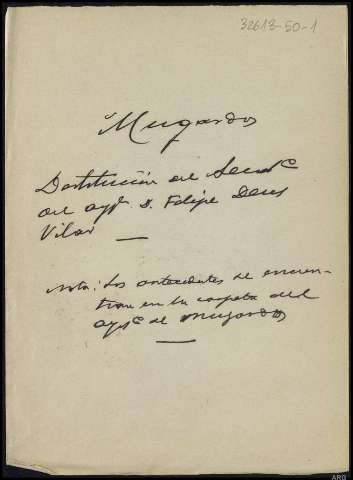 32613-50-1
Mugardos
Destitución del Secrº
del aytº D. Felipe Deus
Vilar —
Nota: Los antecedentes se encuen-
tran en la carpeta del
aytº de Mugardos
ARG